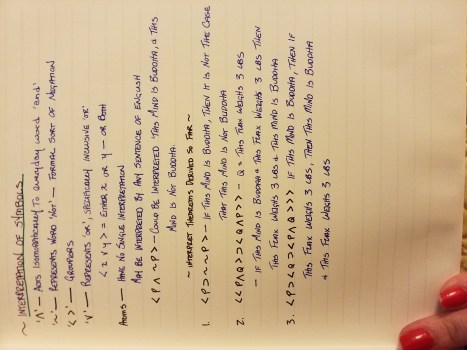 ~ INTERPRETATION OF SYMBOLS
'∧' — ACTS ISOMORPHICALLY TO EVERYDAY WORD 'and'
'~' — REPRESENTS WORD 'NOT' — FORMAL SORT OF NEGATION
'< >' — GROUPERS
'∨' — REPRESENTS 'OR', SPECIFICALLY INCLUSIVE 'OR'
< x ∨ y > = EITHER x OR y — OR BOTH
ATOMS — HAVE NO SINGLE INTERPRETATION
MAY BE INTERPRETED BY ANY SENTENCE OF ENGLISH
< P ∧ ~P > — COULD BE INTERPRETED THIS MIND IS BUDDHA, & THIS
MIND IS NOT BUDDHA.
~ INTERPRET THEOREMS DERIVED SO FAR ~
1. < P ⊃ ~~P > — IF THIS MIND IS BUDDHA, THEN IT IS NOT THE CASE
THAT THIS MIND IS NOT BUDDHA
2. < < P ∧ Q > ⊃ < Q ∧ P > > — Q = THIS FLAX WEIGHS 3 LBS
— IF THIS MIND IS BUDDHA & THIS FLAX WEIGHS 3 LBS THEN
THIS FLAX WEIGHS 3 LBS & THIS MIND IS BUDDHA
3. < P ⊃ < Q ⊃ < P ∧ Q > > > IF THIS MIND IS BUDDHA, THEN IF
THIS FLAX WEIGHS 3 LBS, THEN THIS MIND IS BUDDHA
& THIS FLAX WEIGHS 3 LBS